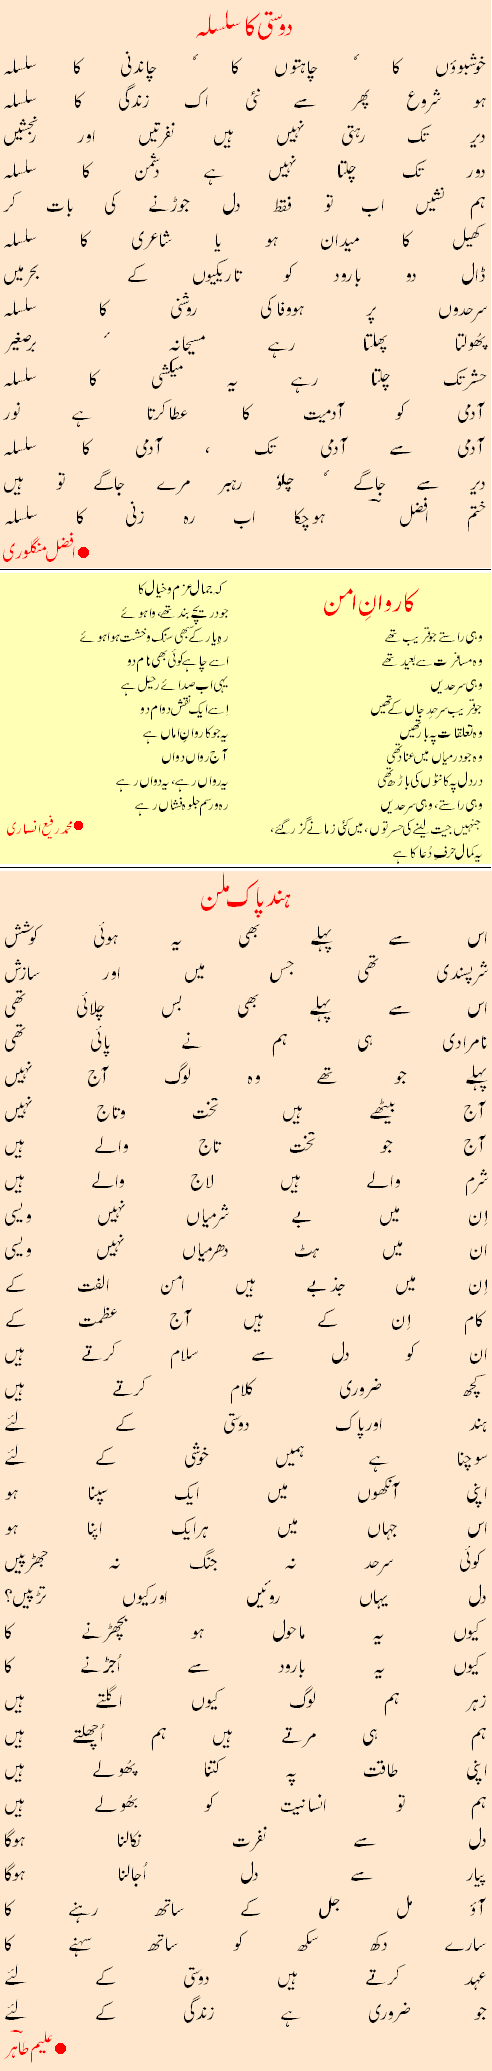 دوستی کا سلسلہ
خوشبوؤں کا ' چاہتوں کا ' چاندنی کا سلسلہ
ہو شروع پھر سے نئی اک زندگی کا سلسلہ
دیر تک رہتی نہیں ہیں نفرتیں اور رنجشیں
دور تک چلتا نہیں ہے دشمن کا سلسلہ
ہم نشیں اب تو فقط دل جوڑنے کی بات کر
کھیل کا میدان ہو یا شاعری کا سلسلہ
ڈال دو بارود کو تاریکیوں کے بحر میں
سرحدوں پر ہو وفا کی روشنی کا سلسلہ
پھُولتا پھلتا رہے میخانہ ' برصغیر
حشر تک چلتا رہے یہ میکشی کا سلسلہ
آدمی کو آدمیت کا عطا کرتا ہے نور
آدمی سے آدمی تک ، آدمی کا سلسلہ
دیر سے جاگے ' چلو رہبر مرے جاگے تو ہیں
ختم افضل ہو چکا اب رہ زنی کا سلسلہ
● افضل منگلوری
کاروانِ امن
وہی راستے جو قریب تھے
وہ مسافرت سے بعید تھے
وہی سرحدیں
جو قریب سرحدِ جاں کے تھیں
وہ تعلقات پہ بار تھیں
وہ جو درمیاں میں عناد تھی
در دل پہ کانٹوں کی باڑھ تھی
وہی راستے، وہی سرحدیں
جنہیں جیت لینے کی حسرتوں ، میں کئی زمانے گزر گئے،
یہ کمال حرفِ دُعا کا ہے
کہ جمال عزم و خیال کا
جو دریچے بند تھے، وا ہوئے
رہِ یار کے سبھی سنگ و خشت ہوا ہوئے
اسے چاہے کوئی بھی نام دو
یہی اب صدائے رحیل ہے
اِسے ایک نقش دوام دو
یہ جو کاروانِ اماں ہے
آج رواں دواں
یہ رواں رہے، یہ دواں رہے
رہ و رسم جلوہ نشاں رہے
● محمد رفیع انصاری
ہند پاک ملن
اس سے پہلے بھی یہ ہوئی کوشش
شرپسندی تھی جس میں اور سازش
اس سے پہلے بھی بس چلائی تھی
نامرادی ہی ہم نے پائی تھی
پہلے جو تھے وہ لوگ آج نہیں
آج بیٹھے ہیں تخت و تاج نہیں
آج جو تخت تاج والے ہیں
شرم والے ہیں لاج والے ہیں
اِن میں بے شرمیاں نہیں ویسی
ان میں ہٹ دھرمیاں نہیں ویسی
اِن میں جذبے ہیں امن الفت کے
کام اِن کے ہیں آج عظمت کے
ان کو دل سے سلام کرتے ہیں
کچھ ضروری کلام کرتے ہیں
ہند اور پاک دوستی کے لئے
سوچنا ہے ہمیں خوشی کے لئے
اپنی آنکھوں میں ایک سپنا ہو
اس جہاں میں ہر ایک اپنا ہو
کوئی سرحد نہ جنگ نہ جھڑپیں
دل یہاں روئیں اور کیوں تڑپیں؟
کیوں یہ ماحول ہو بچھڑنے کا
کیوں یہ بارود سے اُجڑنے کا
زہر ہم لوگ کیوں اگلتے ہیں
ہم ہی مرتے ہیں ہم اُچھلتے ہیں
اپنی طاقت پہ کتنا پھُولے ہیں
ہم تو انسانیت کو بھُولے ہیں
دل سے نفرت نکالنا ہوگا
پیار سے دل اُجالنا ہوگا
آؤ مل جل کے ساتھ رہنے کا
سارے دکھ سکھ کو ساتھ سہنے کا
عہد کرتے ہیں دوستی کے لئے
جو ضروری ہے زندگی کے لئے
● علیم طاہر